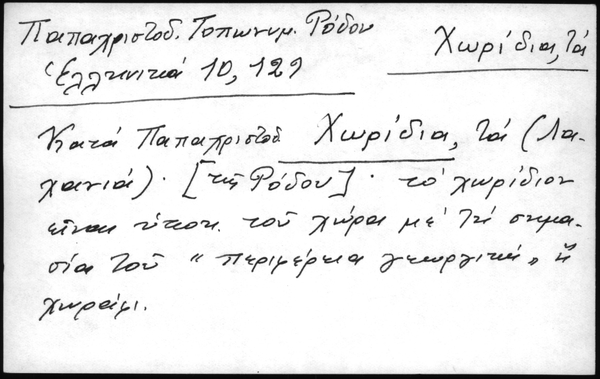 Παπαχριστοδ. Τοπωνυμ. Ρόδου
Χωρίδια, τά
Ἑλληνικά 10, 129
Κατά Παπαχριστοδ Χωρίδια, τά (Λα-
χανιά). [τῆς Ρόδου]. τό χωρίδιον
εἶναι ὑποκ. τοῦ χώρα μέ τή σημα-
σία τοῦ "περιφέρεια γεωργική" ἤ
χωράφι.